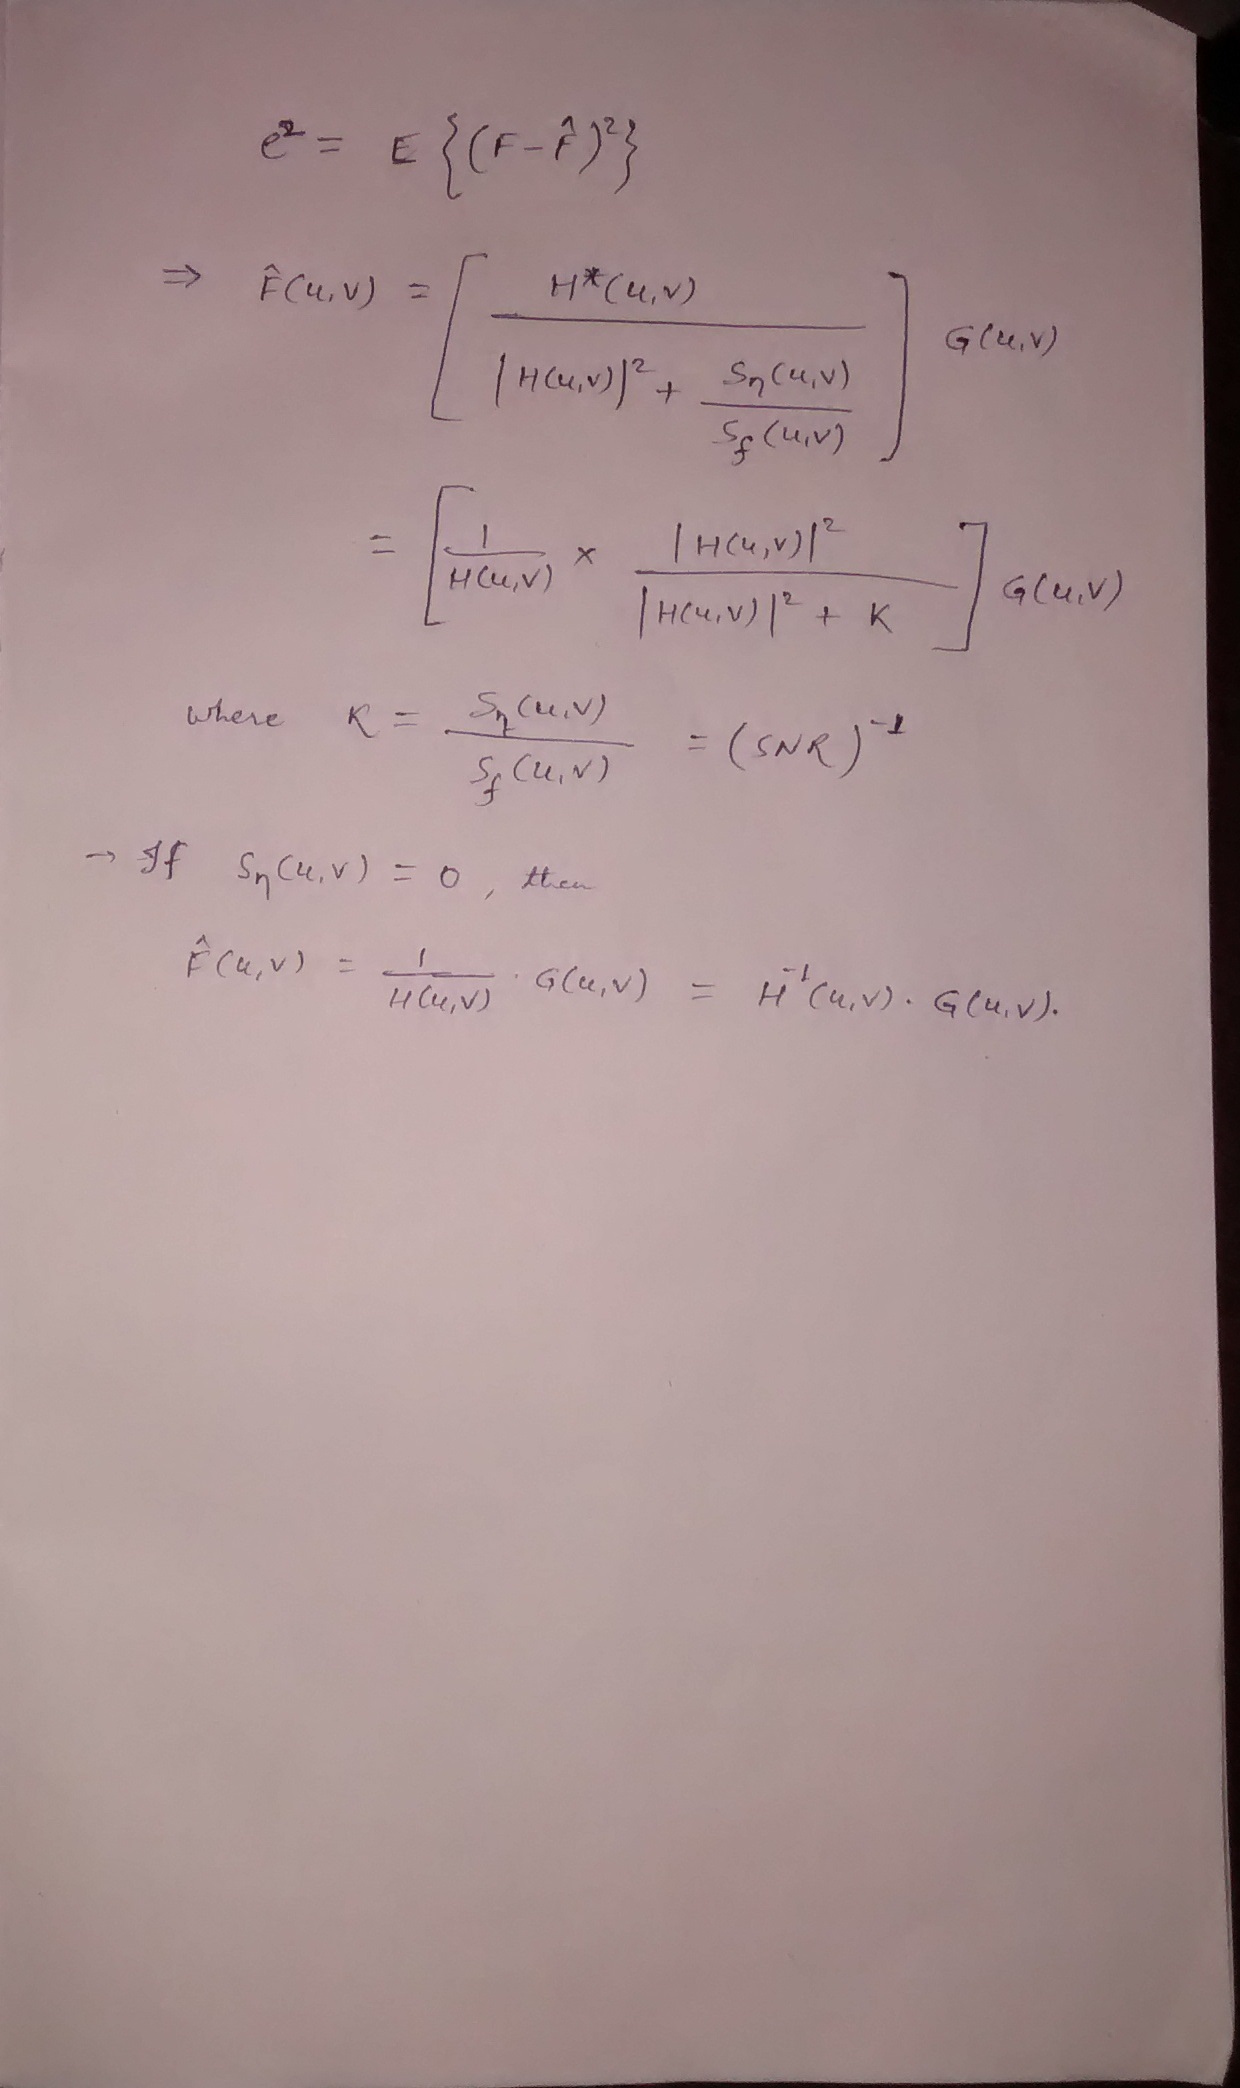 e² = E {(F - F̂)²}
⇒ F̂(u,v) = [ H*(u,v) / ( |H(u,v)|² + Sη(u,v) / Sf(u,v) ) ] G(u,v)
= [ 1 / H(u,v) × |H(u,v)|² / ( |H(u,v)|² + K ) ] G(u,v)
where K = Sη(u,v) / Sf(u,v) = (SNR)⁻¹
→ If Sη(u,v) = 0, then
F̂(u,v) = 1 / H(u,v) · G(u,v) = H⁻¹(u,v) · G(u,v).